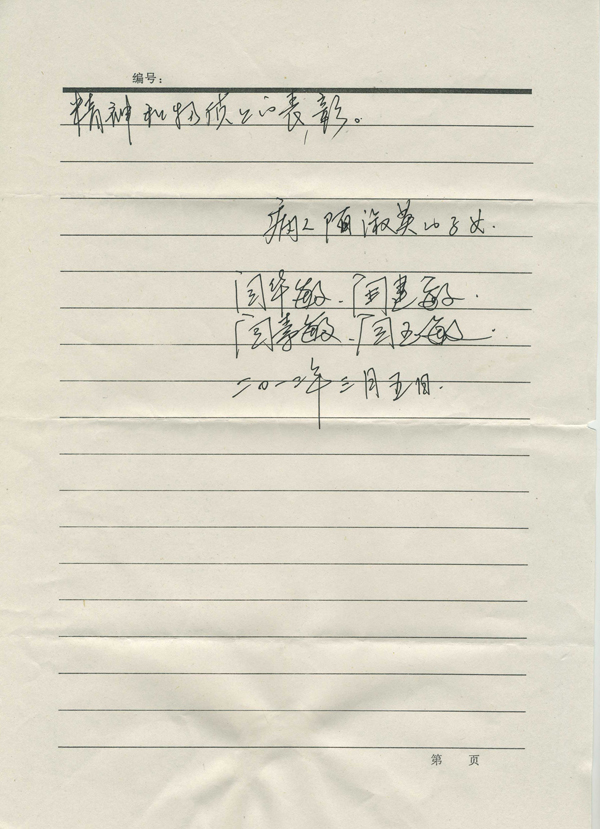 编号:
精神和物质上的表彰。
病人陌淑英的子女.
闫华敏、闫建敏.
闫素敏、闫玉敏.
二〇一二年三月五日.
第 页